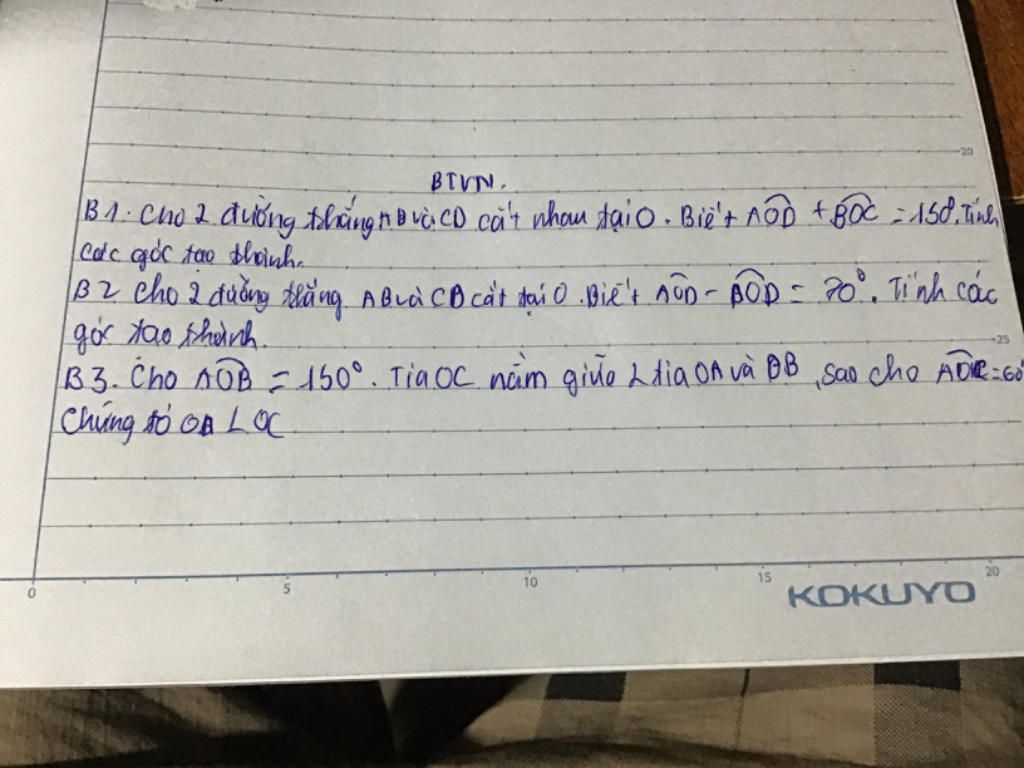 20
BTVN.
B1. Cho 2 đường thẳng AB và CD cắt nhau tại O. Biết AOD + BOC = 150°. Tính
các góc tạo thành.
B2 Cho 2 đường thẳng AB và CD cắt tại O. Biết AOD - BOD = 70°. Tính các
góc tạo thành.
25
B3. Cho AOB = 150°. Tia OC nằm giữa 2 tia OA và OB, sao cho AOC = 60°
Chứng tỏ OB ⊥ OC
0 5 10 15 20
KOKUYO